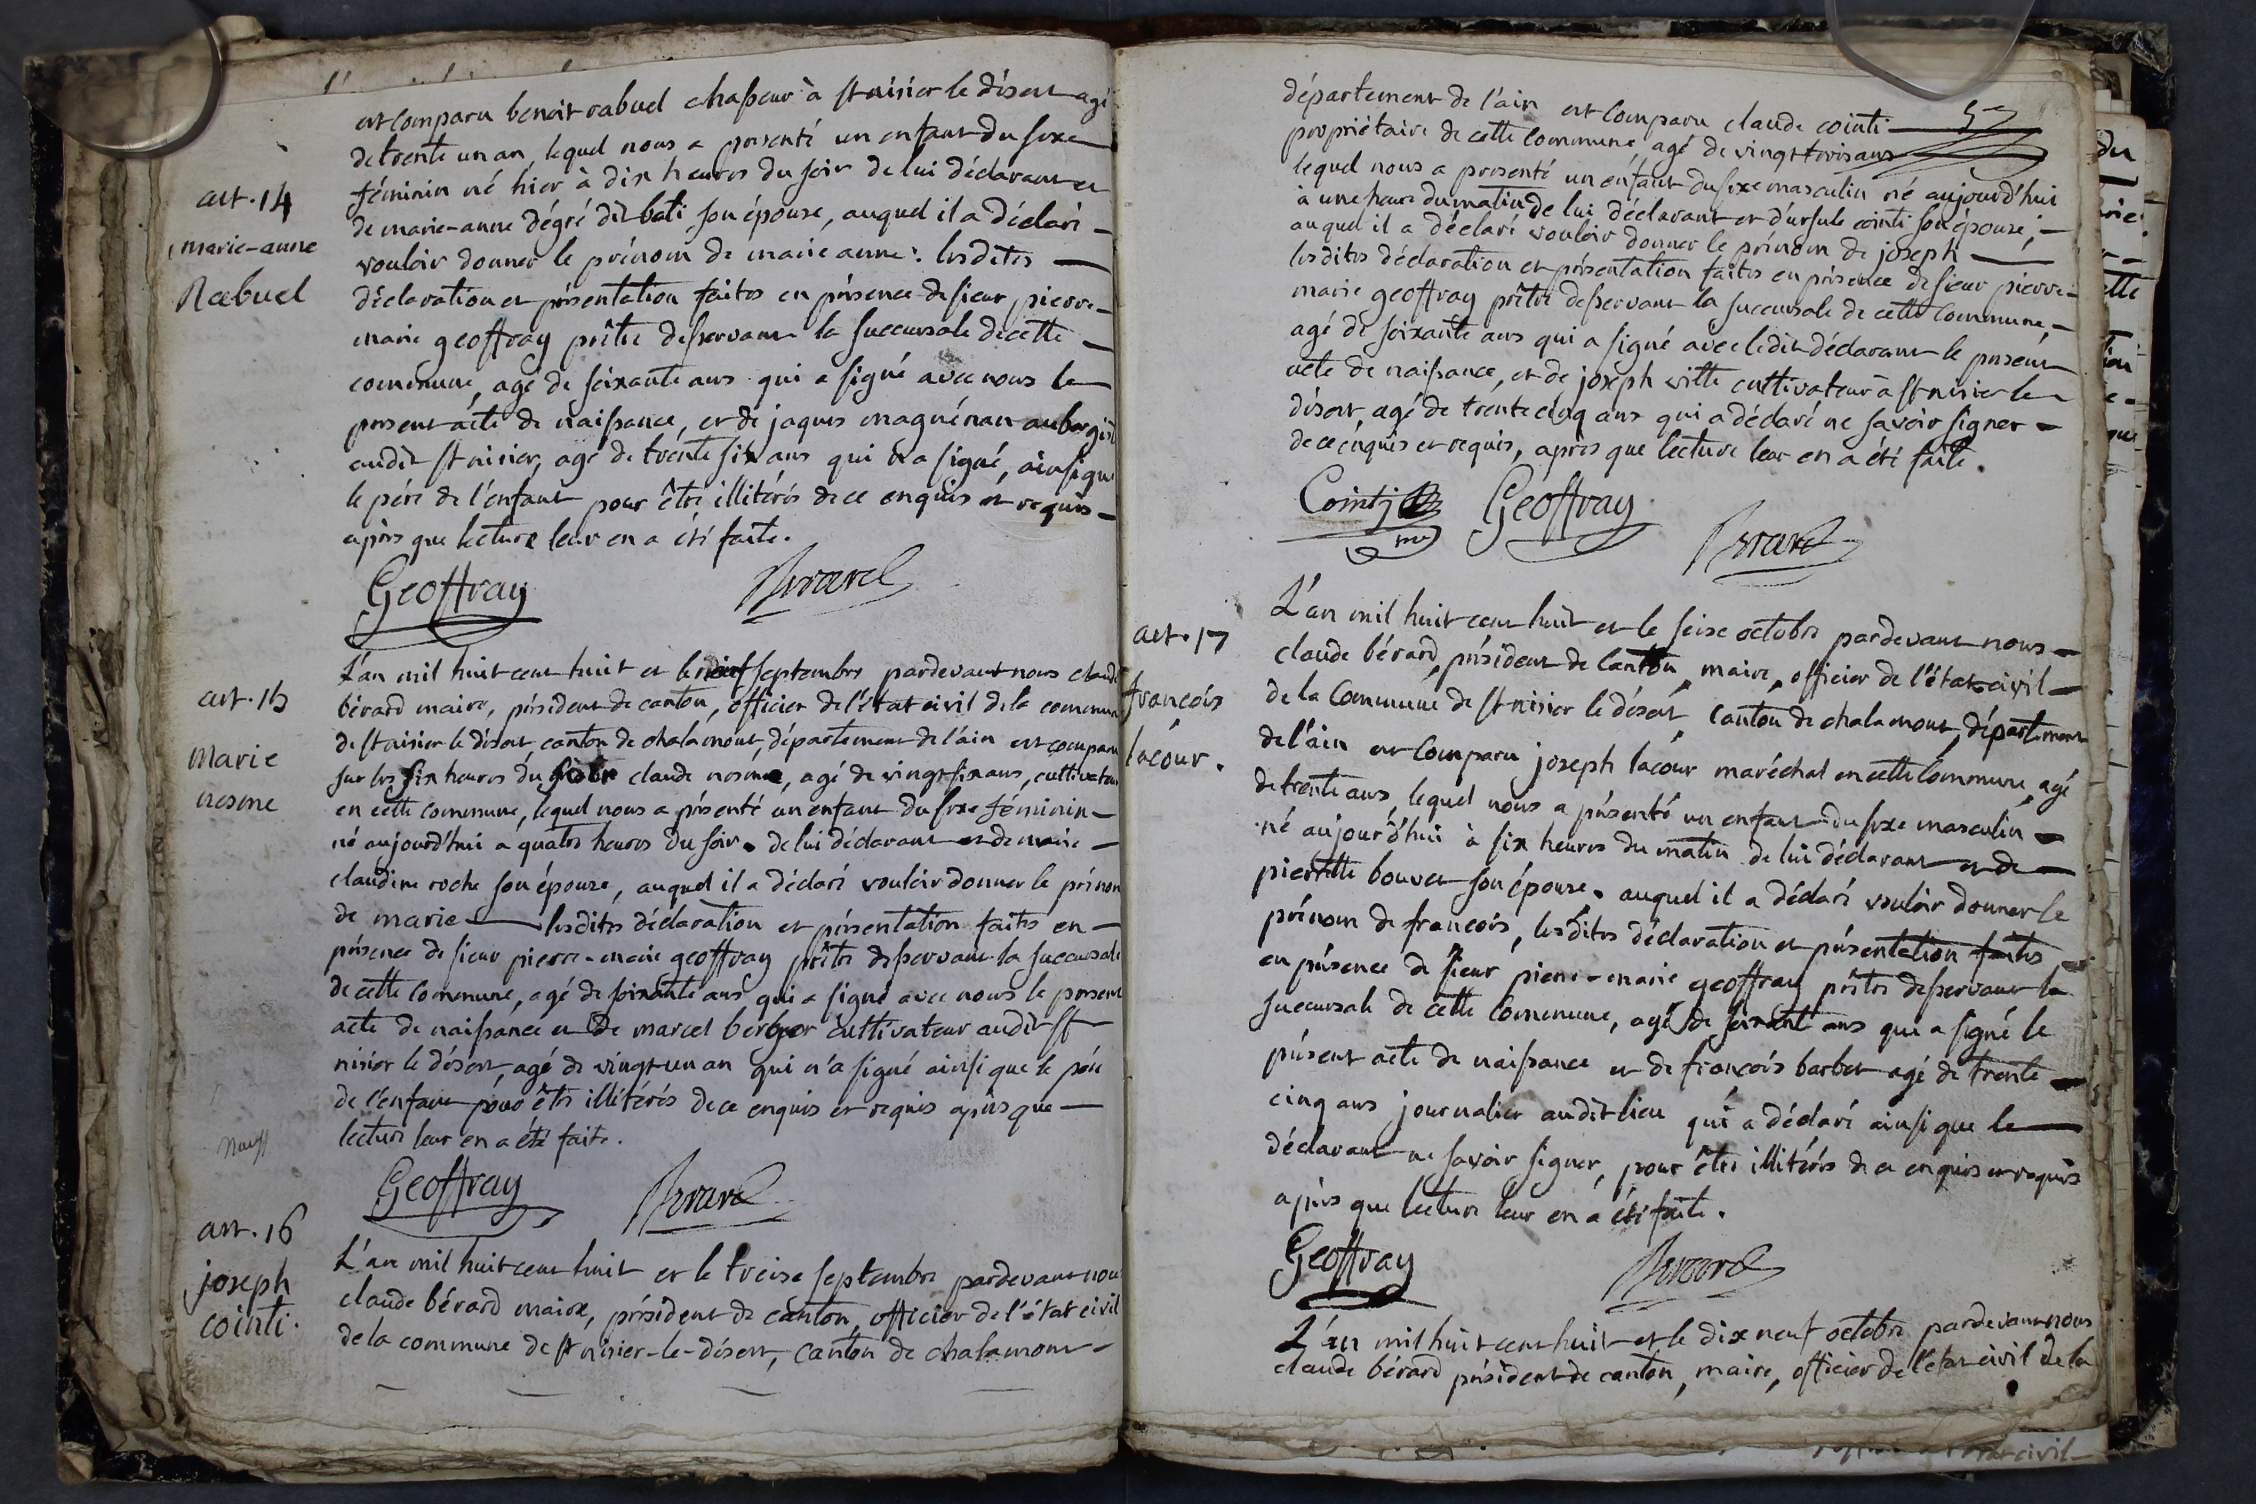 est comparu benoit rabuel chasseur à st nisier le désert agé
de trente un an, lequel nous a présenté un enfant du sexe
féminin né hier à dix heures du soir de lui déclarant et
de marie-anne dégré dit bati, son épouse, auquel il a déclaré
vouloir donner le prénom de marie anne : lesdites
déclaration et présentation faites en présence de sieur pierre-
marie geoffray prêtre desservant la succursale de cette
commune, agé de soixante ans qui a signé avec nous le
present acte de naissance, et de jaques maguénan aubergist
audit st nisier, agé de trente six ans qui n'a signé, ainsi que
le pére de l'enfant pour être illitérés de ce enquis et requis
après que lecture leur en a été faite.
Geoffray Berard
art. 14
marie-anne
Rabuel
L'an mil huit cent huit et le neuf septembre pardevant nous claude
bérard maire, président de canton, officier de l'état civil de la commune
de st nisier le désert, canton de chalamont, département de l'ain est comparu
sur les six heures du soir claude nesme, agé de vingt six ans, cultivateur
en cette commune, lequel nous a présenté un enfant du sexe féminin
né aujourd'hui a quatre heures du soir de lui déclarant et de marie
claudine roche son épouse, auquel il a déclaré vouloir donner le prénom
de marie lesdites déclaration et présentation faites en
présence de sieur pierre-marie geoffray prêtre desservant la succursale
de cette commune, agé de soixante ans qui a signé avec nous le present
acte de naissance et de marcel berger cultivateur audit st
nisier le désert, agé de vingt un an qui n'a signé ainsi que le pére
de l'enfant pour être illitérés de ce enquis et requis après que
lecture leur en a été faite.
Geoffray Berard
art. 15
Marie
nesme
art. 16
joseph
cointi.
L'an mil huit cent huit et le treize septembre pardevant nous
claude bérard maire, président de canton, officier de l'état civil
de la commune de st nisier-le-désert, canton de chalamont
département de l'ain est comparu claude cointi
propriétaire de cette commune agé de vingt trois ans
lequel nous a présenté un enfant du sexe masculin né aujourd'hui
à une heure du matin de lui déclarant et d'ursule cointi son épouse,
auquel il a déclaré vouloir donner le prénom de joseph
lesdites déclaration et présentation faites en présence de sieur pierre-
marie geoffray prêtre desservant la succursale de cette commune,
agé de soixante ans qui a signé avec ledit déclarant le present
acte de naissance, et de joseph vitte cultivateur à st nisier le
désert, agé de trente cinq ans qui a déclaré ne savoir signer
de ce enquis et requis, après que lecture leur en a été faite.
Cointy Geoffray Berard
art. 17
francois
lacour.
L'an mil huit cent huit et le seise octobre pardevant nous
claude bérard, président de canton, maire, officier de l'état civil
de la commune de st nisier le désert, canton de chalamont, département
de l'ain est comparu joseph lacour maréchal en cette commune, agé
de trente ans, lequel nous a présenté un enfant du sexe masculin
né aujourd'hui à six heures du matin de lui déclarant et de
pierrette bouvet son épouse. auquel il a déclaré vouloir donner le
prénom de francois, lesdites déclaration et présentation faites
en présence de sieur pierre-marie geoffray prêtre desservant la
succursale de cette commune, agé de soixante ans qui a signé le
présent acte de naissance et de francois barbet agé de trente
cinq ans journalier audit lieu qui a déclaré ainsi que le
déclarant ne savoir signer, pour être illitérés de ce enquis et requis
après que lecture leur en a été faite.
Geoffray Berard
L'an mil huit cent huit et le dix neuf octobre pardevant nous
claude bérard président de canton, maire, officier de l'état civil de la